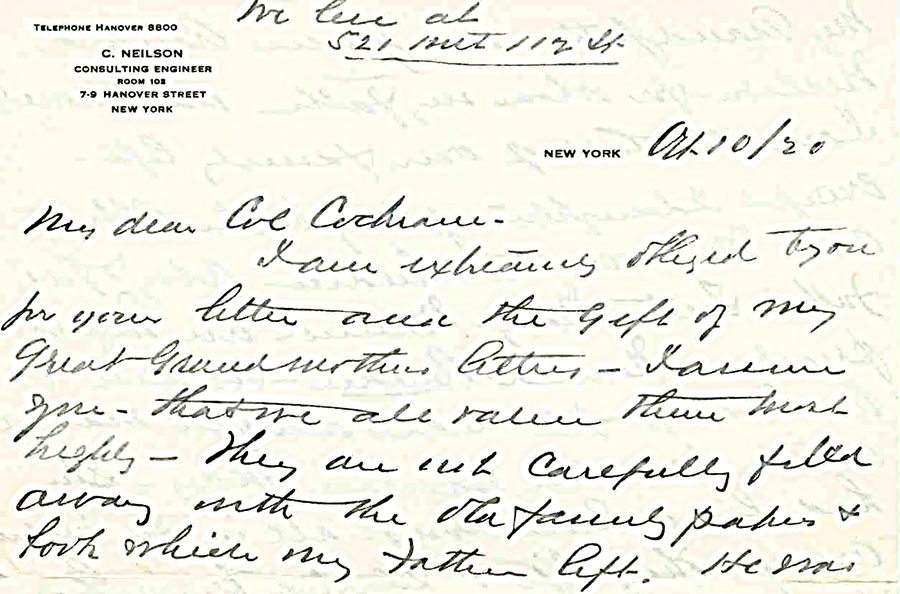 We live at
521 West 112 St
TELEPHONE HANOVER 8800
C. NEILSON
CONSULTING ENGINEER
ROOM 102
7-9 HANOVER STREET
NEW YORK
NEW YORK Oct 10/20
My dear Col Cochrane-
I am extremely obliged to you
for your letter and the gift of my
Great Grandmothers letters - I assure
you - that we all value them most
highly - They are now carefully filed
away with the old family papers &
book which my Father left. He was